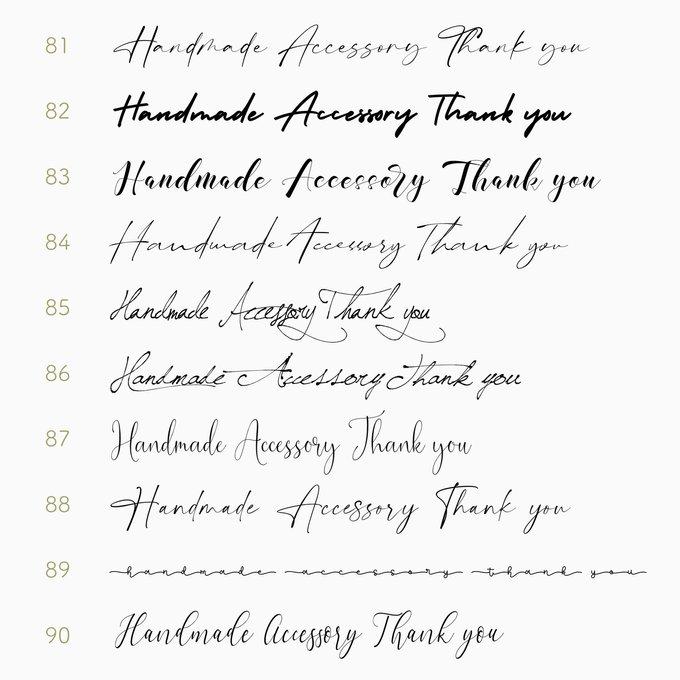 81 Handmade Accessory Thank you
82 Handmade Accessory Thank you
83 Handmade Accessory Thank you
84 Handmade Accessory Thank you
85 Handmade Accessory Thank you
86 Handmade Accessory Thank you
87 Handmade Accessory Thank you
88 Handmade Accessory Thank you
89 handmade accessory thank you
90 Handmade accessory Thank you